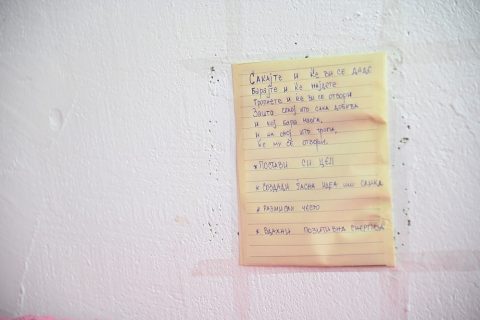 Сакајте и ќе ви се даде
Барајте и ќе најдете
Тропнете и ќе ви се отвори
Зашто секој што сака добива
и кој бара наоѓа,
и на овој што тропа,
ќе му се отвори.
* Постави си цел
* Создади јасна идеа или слика
* Размисли често
* Вдахни позитивна енергија